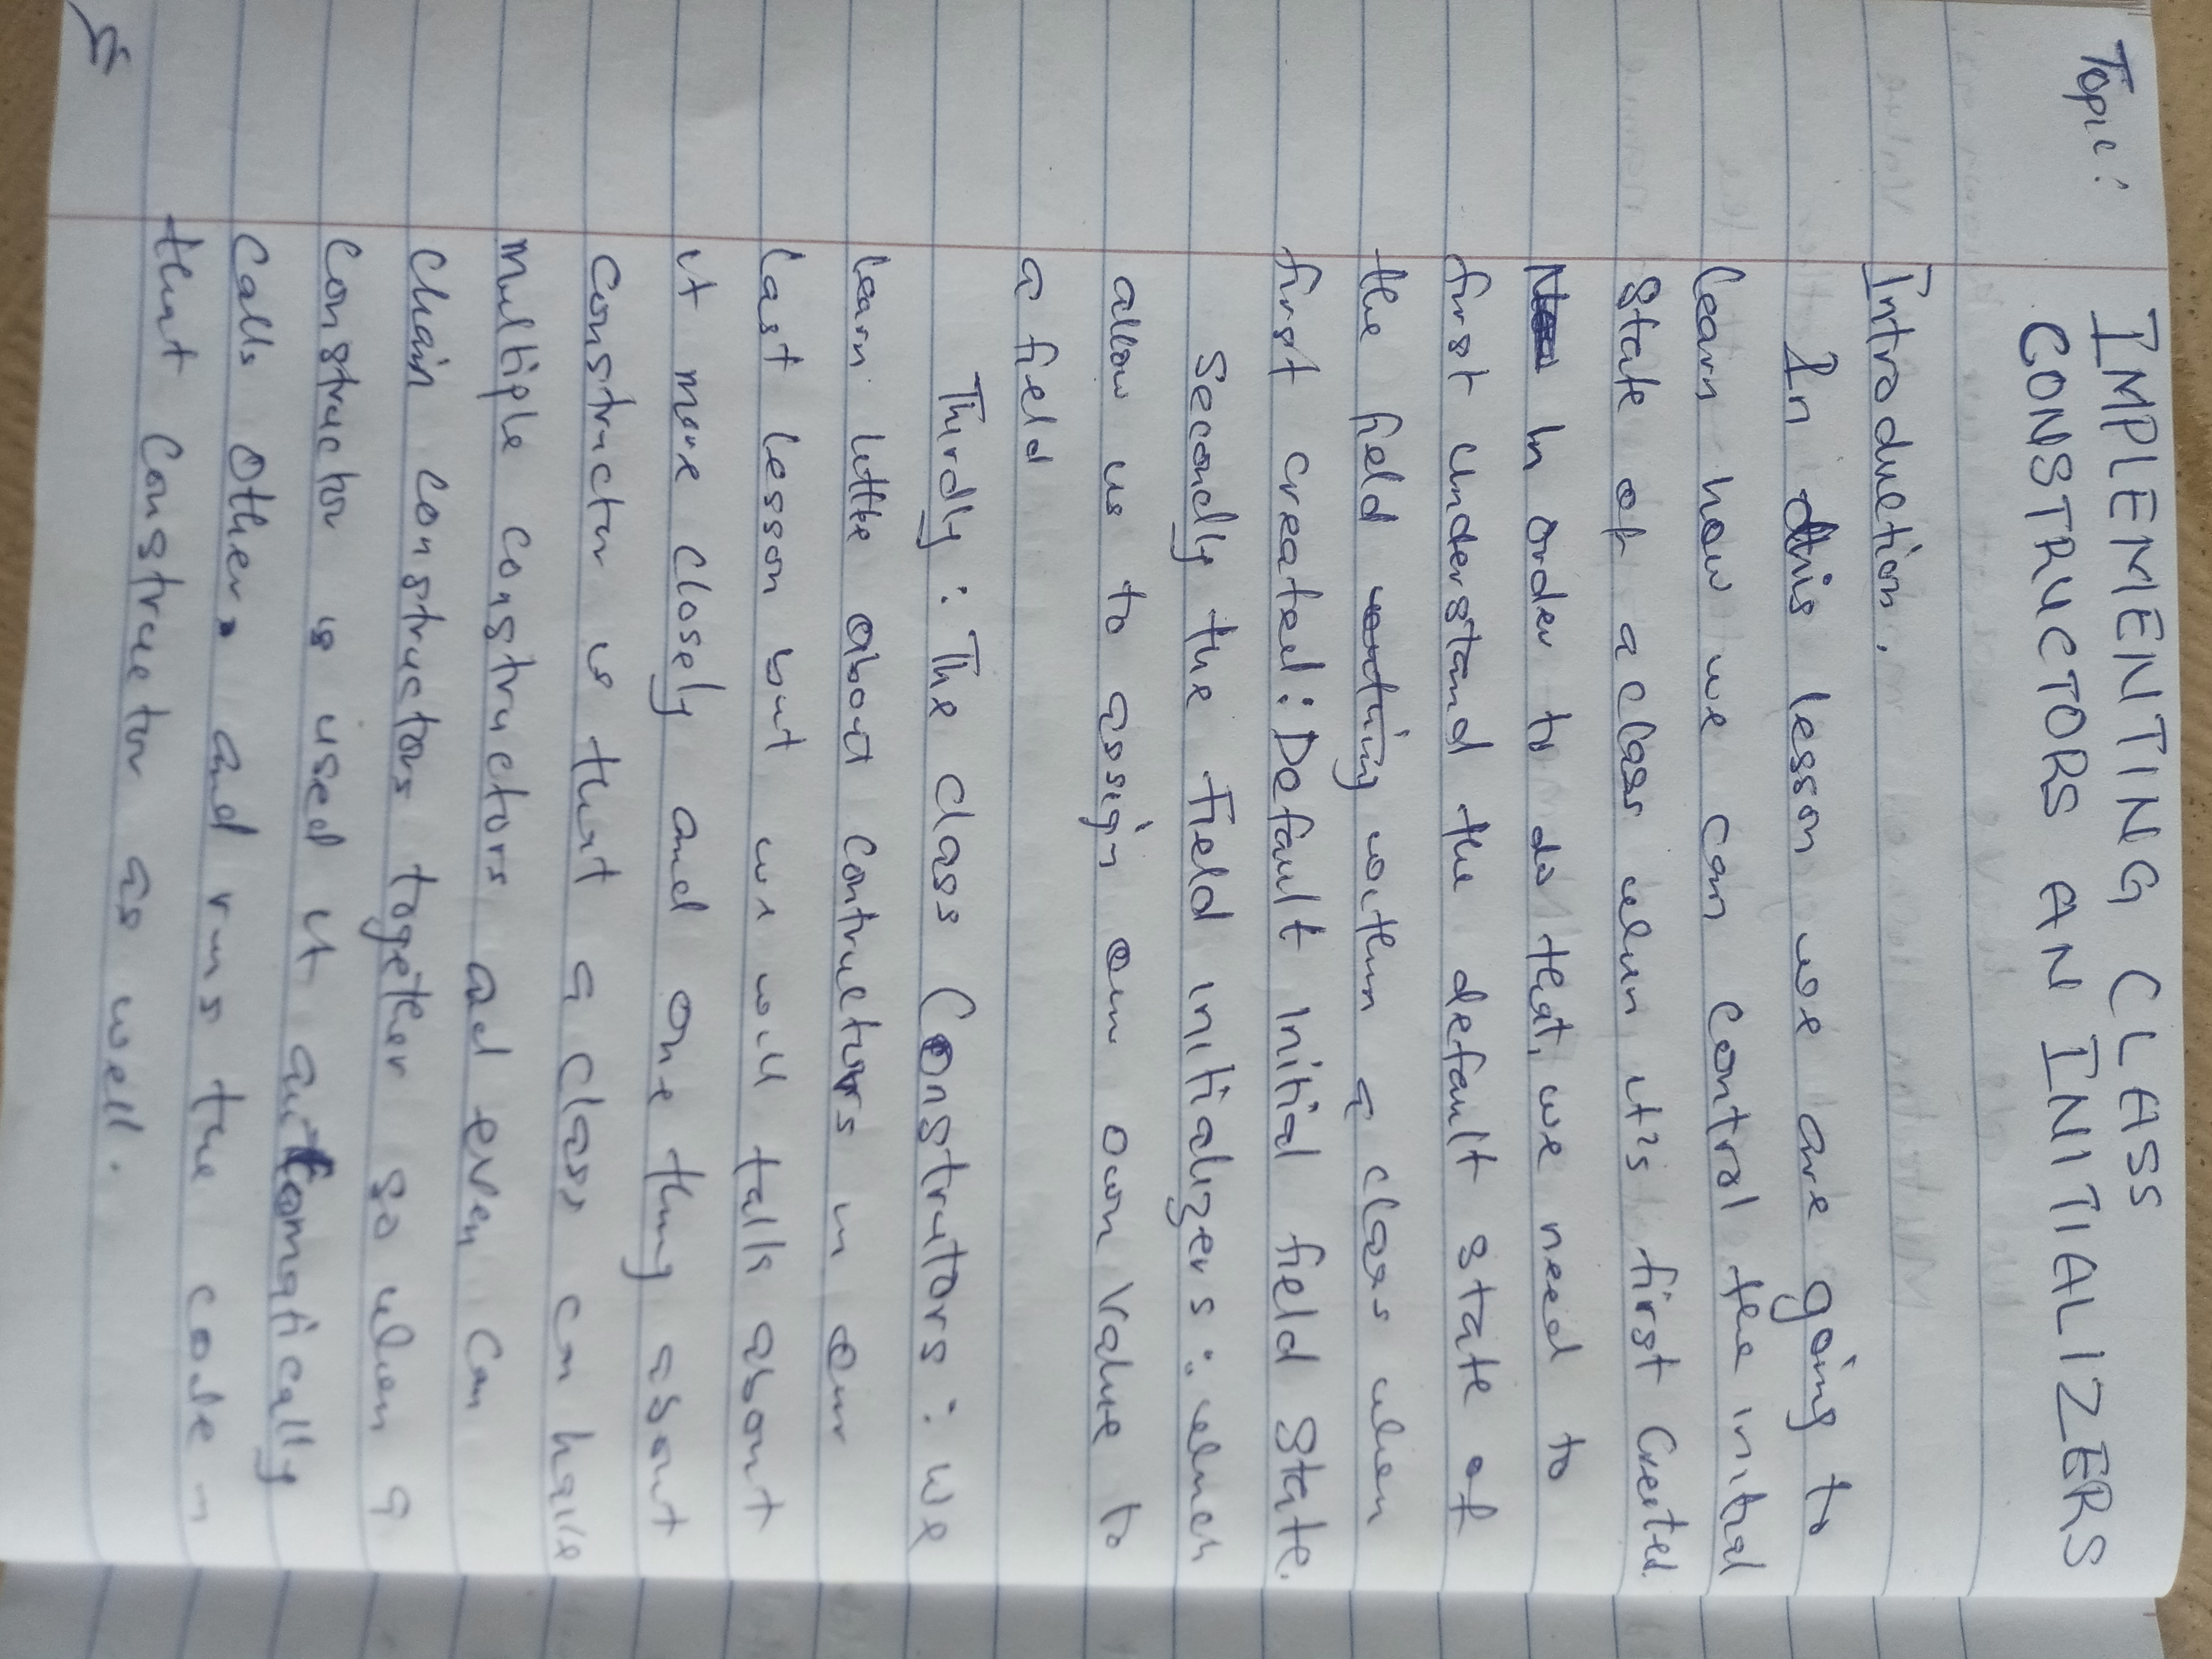 Topic: IMPLEMENTING CLASS
CONSTRUCTORS AN INITIALIZERS
Introduction.
In this lesson we are going to
learn how we can control the initial
state of a class when it's first created.
In order to do that, we need to
first understand the default state of
the field within a class when
first created: Default initial field state.
Secondly the Field initializers: which
allow us to assign our own value to
a field
Thirdly: The class Construtors: we
learn little about contructors in our
last lesson but we will talk about
it more closely and one thing about
constructor is that a class can have
multiple constructors ad even can
chain constructors together so when a
constructor is used it automatically
calls others and runs the code in
that constructor as well.